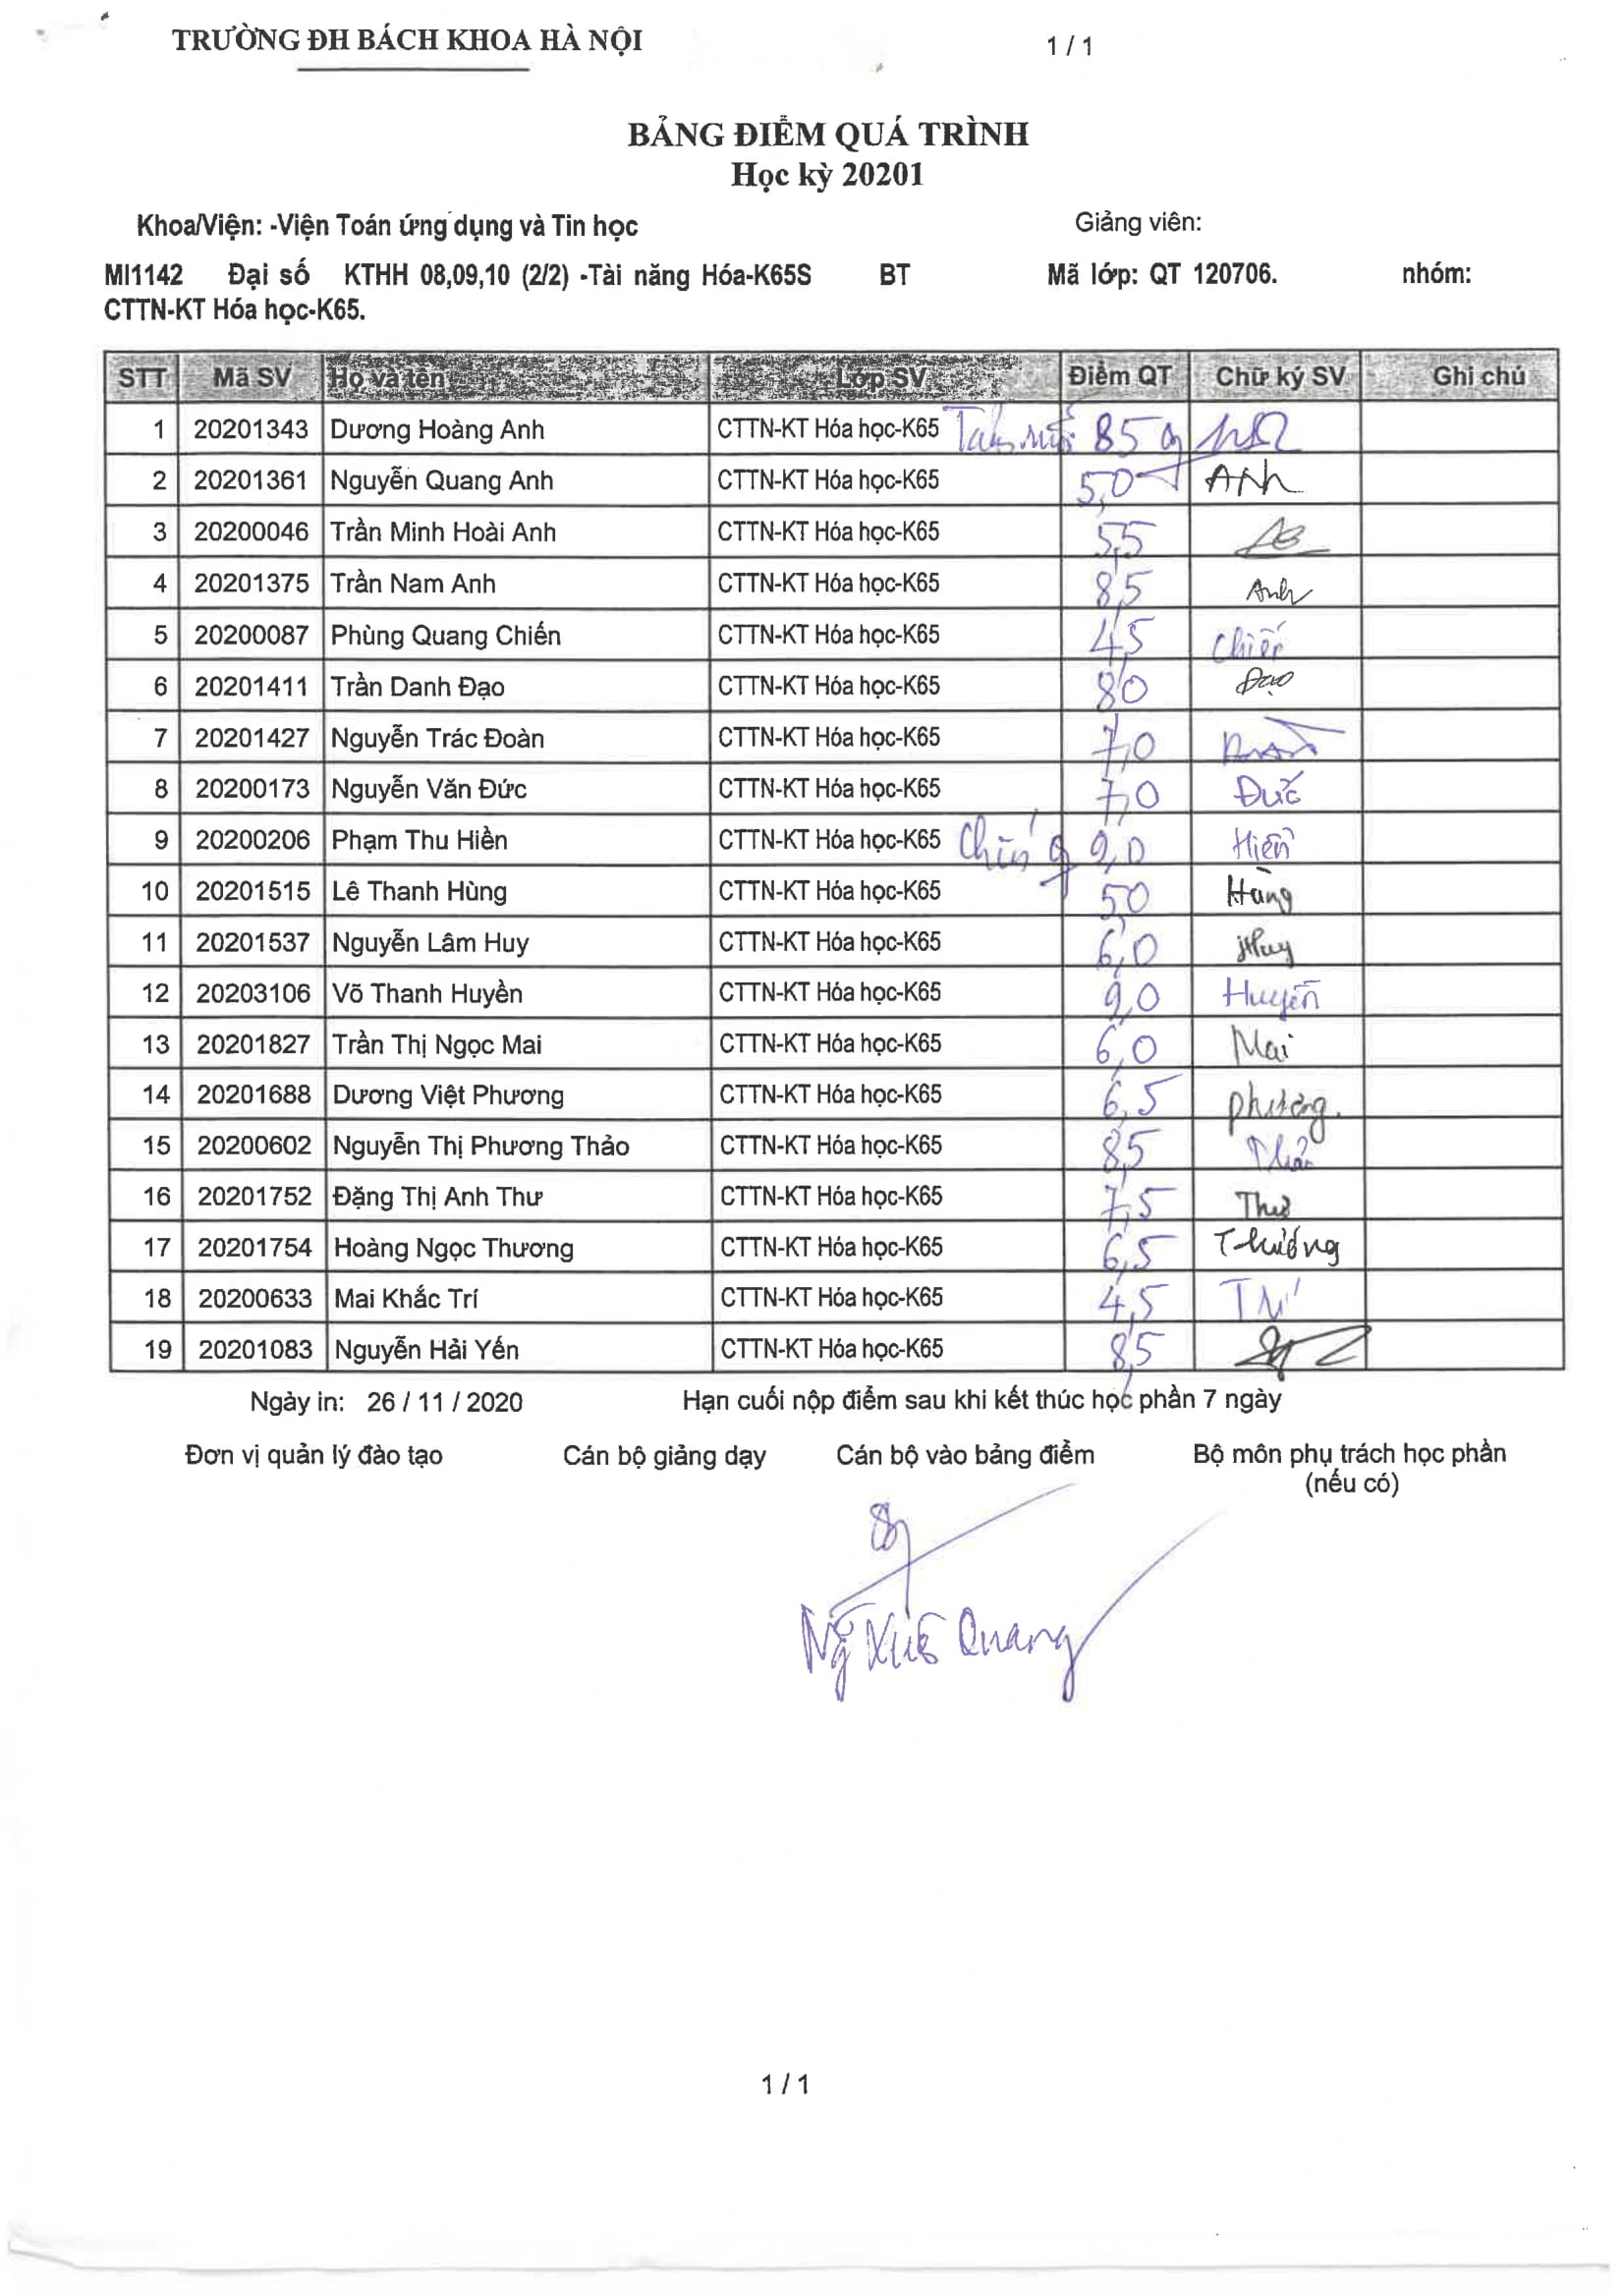 TRƯỜNG ĐH BÁCH KHOA HÀ NỘI 1 / 1
BẢNG ĐIỂM QUÁ TRÌNH
Học kỳ 20201
Khoa/Viện: -Viện Toán ứng dụng và Tin học Giảng viên:
MI1142 Đại số KTHH 08,09,10 (2/2) -Tài năng Hóa-K65S BT Mã lớp: QT 120706. nhóm:
CTTN-KT Hóa học-K65.
STT Mã SV Họ và tên Lớp SV Điểm QT Chữ ký SV Ghi chú
1 20201343 Dương Hoàng Anh CTTN-KT Hóa học-K65 Tám rưỡi 85
2 20201361 Nguyễn Quang Anh CTTN-KT Hóa học-K65 5,0 Anh
3 20200046 Trần Minh Hoài Anh CTTN-KT Hóa học-K65 5,5
4 20201375 Trần Nam Anh CTTN-KT Hóa học-K65 8,5 Anh
5 20200087 Phùng Quang Chiến CTTN-KT Hóa học-K65 4,5 Chiến
6 20201411 Trần Danh Đạo CTTN-KT Hóa học-K65 8,0 Đạo
7 20201427 Nguyễn Trác Đoàn CTTN-KT Hóa học-K65 7,0
8 20200173 Nguyễn Văn Đức CTTN-KT Hóa học-K65 7,0 Đức
9 20200206 Phạm Thu Hiền CTTN-KT Hóa học-K65 Chín 9,0 Hiền
10 20201515 Lê Thanh Hùng CTTN-KT Hóa học-K65 5,0 Hùng
11 20201537 Nguyễn Lâm Huy CTTN-KT Hóa học-K65 6,0 Huy
12 20203106 Võ Thanh Huyền CTTN-KT Hóa học-K65 9,0 Huyền
13 20201827 Trần Thị Ngọc Mai CTTN-KT Hóa học-K65 6,0 Mai
14 20201688 Dương Việt Phương CTTN-KT Hóa học-K65 6,5 Phương
15 20200602 Nguyễn Thị Phương Thảo CTTN-KT Hóa học-K65 8,5 Thảo
16 20201752 Đặng Thị Anh Thư CTTN-KT Hóa học-K65 7,5 Thư
17 20201754 Hoàng Ngọc Thương CTTN-KT Hóa học-K65 6,5 Thương
18 20200633 Mai Khắc Trí CTTN-KT Hóa học-K65 4,5 Trí
19 20201083 Nguyễn Hải Yến CTTN-KT Hóa học-K65 8,5
Ngày in: 26 / 11 / 2020 Hạn cuối nộp điểm sau khi kết thúc học phần 7 ngày
Đơn vị quản lý đào tạo Cán bộ giảng dạy Cán bộ vào bảng điểm Bộ môn phụ trách học phần
(nếu có)
Quang
1 / 1